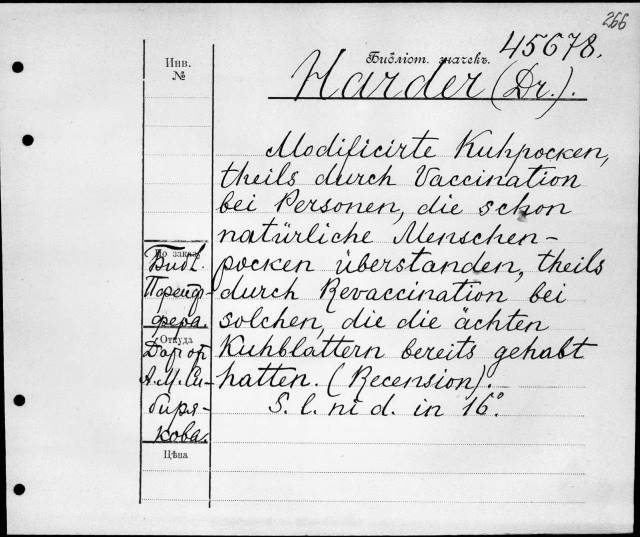 266
45678.
Инв.
№
Библіот. значекъ.
Harder (Dr.).
Modificirte Kuhpocken,
theils durch Vaccination
bei Personen, die schon
natürliche Menschen-
pocken überstanden, theils
durch Revaccination bei
solchen, die die ächten
Kuhblattern bereits gehabt
hatten. (Recension).
S. l. ni d. in 16°.
По заказу
Библ.
Порейф-
фера.
Откуда
Дар от
А. М. Си-
биря-
кова.
Цѣна